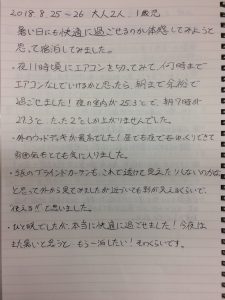 2018.8.25～26 大人2人、1歳児
暑い日にも快適に過ごせるのか体感してみようと
思って宿泊してみました。
・夜11時頃にエアコンを切ってみて、何時まで
エアコンなしでいけるかと思ったら、朝まで余裕で
過ごせました！夜の室内が25.3℃で、朝7時が
27.3℃と、たった2℃しか上がりませんでした。
・外のウッドデキが最高でした！昼でも夜でもゆっくりできて
雰囲気もとても気に入りました。
・のブラインドカーテンも、これで透けて見えたりしないのかな
と思って外から見てみましたが近づいても影が見えるくらいで、
"使える!!"と思いました。
・ひと晩でしたが、本当に快適に過ごせました！今夜は
また暑いと思うと もう一泊したい！そのくらいです。